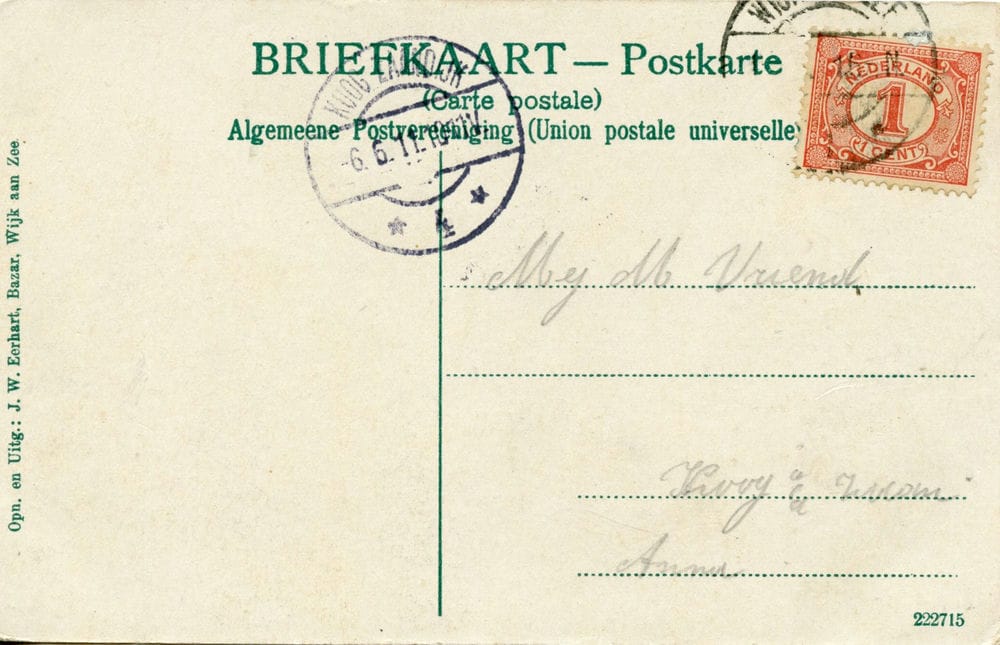 BRIEFKAART — Postkarte
(Carte postale)
Algemeene Postvereeniging (Union postale universelle
NEDERLAND
1
1 CENT
KOOG ZAANDIJK
-6.6.11.10-11V.
4
Mej M Vriend
Anna
Opn. en Uitg.: J. W. Eerhart, Bazar, Wijk aan Zee
222715